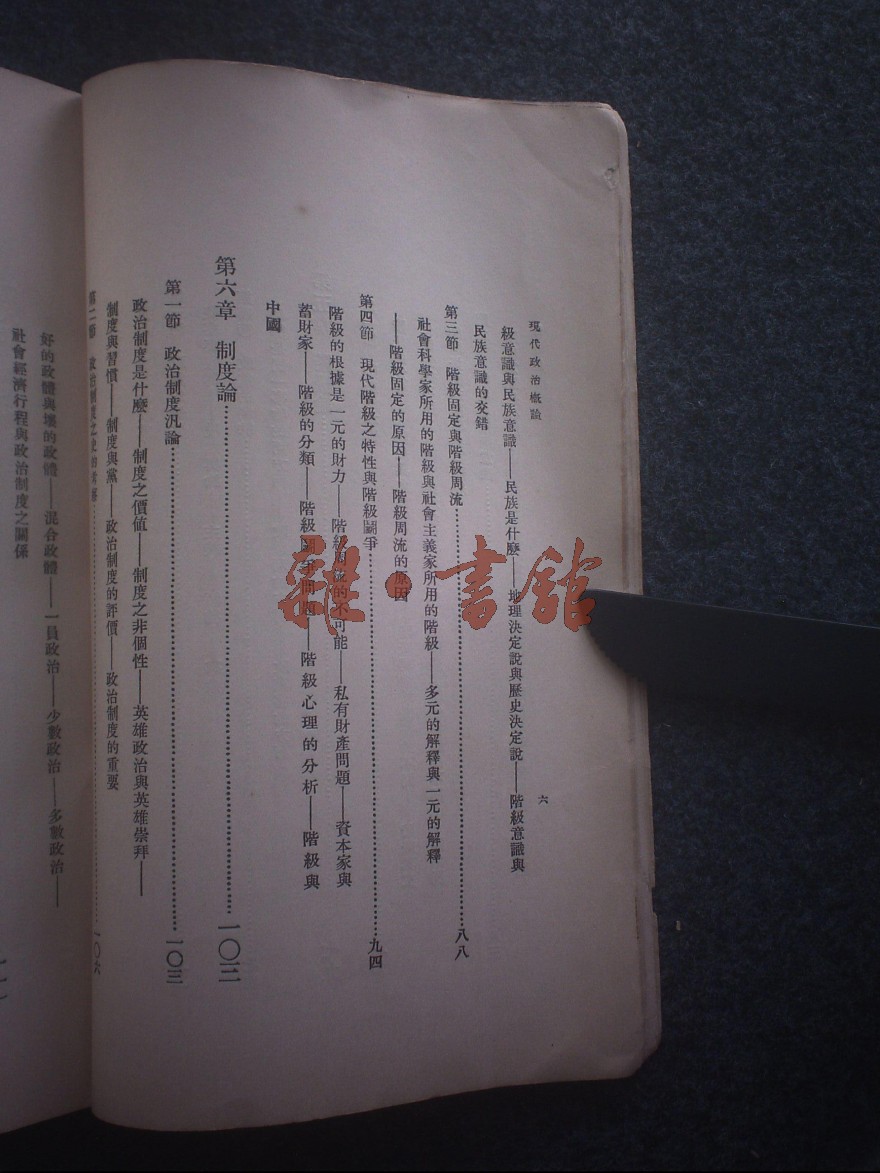 現代政治概論
六
級意識與民族意識——民族是什麼——地理決定說與歷史決定說——階級意識與
民族意識的交錯
第三節 階級固定與階級周流……八八
社會科學家所用的階級與社會主義家所用的階級——多元的解釋與一元的解釋
——階級固定的原因——階級周流的原因
第四節 現代階級之特性與階級鬭爭……九四
階級的根據是一元的財力——階級周流的不可能——私有財產問題——資本家與
蓄財家——階級的分類——階級鬭爭問題——階級心理的分析——階級與
中國
第六章 制度論……一〇三
第一節 政治制度汎論……一〇三
政治制度是什麼——制度之價値——制度之非個性——英雄政治與英雄崇拜——
制度與習慣——制度與黨——政治制度的評價——政治制度的重要
第二節 政治制度之史的考察……一〇六
好的政體與壞的政體——混合政體——一員政治——少數政治——多數政治——
社會經濟行程與政治制度之關係
雜·書館